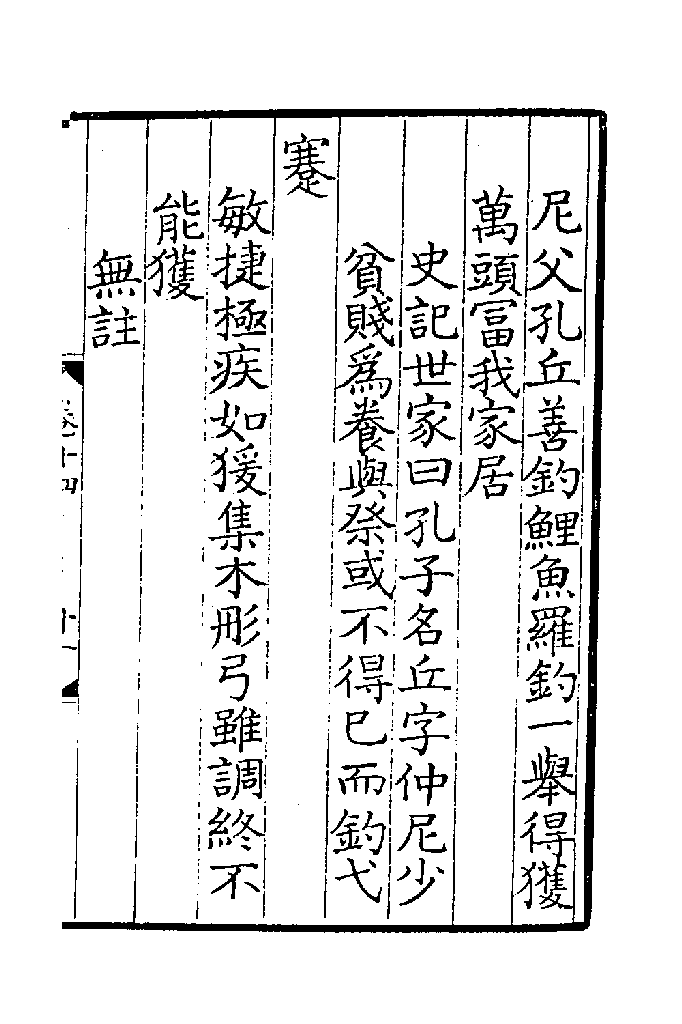 尼父孔丘善釣鯉魚羅釣一舉得獲
萬頭富我家居
史記世家曰孔子名丘字仲尼少
貧賤爲養與祭或不得已而釣弋
蹇
敏捷極疾如猨集木彤弓雖調終不
能獲
無註
卷十四
十一